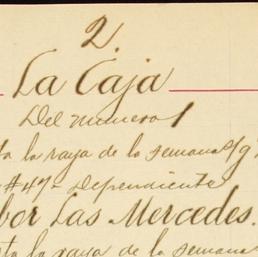 2.
La Caja
Del numero 1
la raya de la semana
#47- Dependiente
Las Mercedes.
la raya de la semana